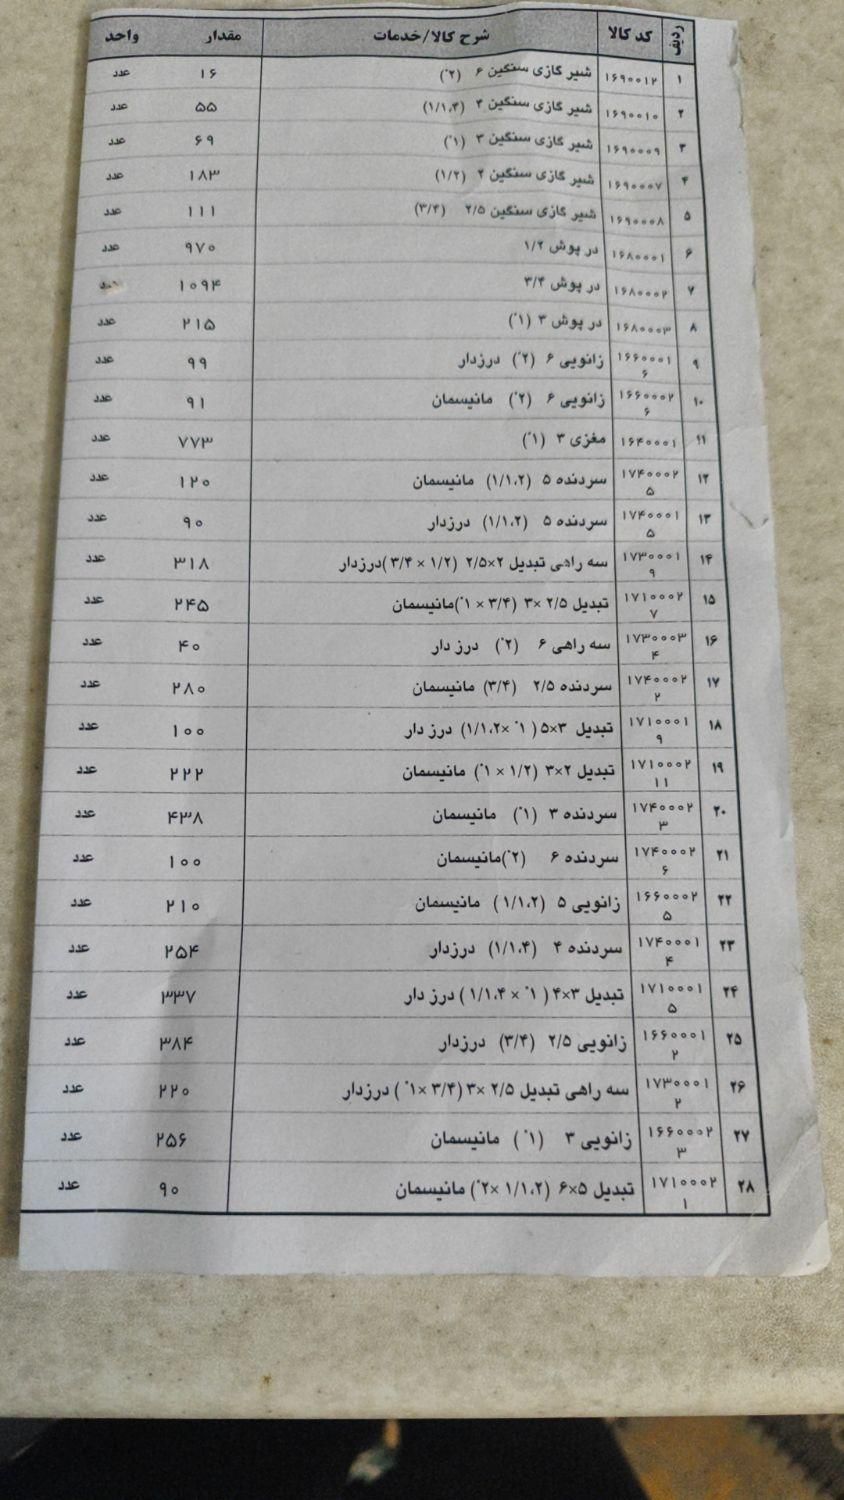 ردیف کد کالا شرح کالا/خدمات مقدار واحد
۱ ۱۶۹۰۰۱۲ شیر گازی سنگین ۶ (۲ً) ۱۶ عدد
۲ ۱۶۹۰۰۱۰ شیر گازی سنگین ۴ (۱/۱،۴) ۵۵ عدد
۳ ۱۶۹۰۰۰۹ شیر گازی سنگین ۳ (۱ً) ۶۹ عدد
۴ ۱۶۹۰۰۰۷ شیر گازی سنگین ۲ (۱/۲) ۱۸۳ عدد
۵ ۱۶۹۰۰۰۸ شیر گازی سنگین ۲/۵ (۳/۴) ۱۱۱ عدد
۶ ۱۶۸۰۰۰۱ در پوش ۱/۲ ۹۷۰ عدد
۷ ۱۶۸۰۰۰۲ در پوش ۳/۴ ۱۰۹۴ عدد
۸ ۱۶۸۰۰۰۳ در پوش ۳ (۱ً) ۲۱۵ عدد
۹ ۱۶۶۰۰۰۱ زانویی ۶ (۲ً) درزدار ۹۹ عدد
۶
۱۰ ۱۶۶۰۰۰۲ زانویی ۶ (۲ً) مانیسمان ۹۱ عدد
۶
۱۱ ۱۶۴۰۰۰۱ مغزی ۳ (۱ً) ۷۷۳ عدد
۱۲ ۱۷۴۰۰۰۲ سردنده ۵ (۱/۱،۲) مانیسمان ۱۲۰ عدد
۵
۱۳ ۱۷۴۰۰۰۱ سردنده ۵ (۱/۱،۲) درزدار ۹۰ عدد
۵
۱۴ ۱۷۳۰۰۰۱ سه راهی تبدیل ۲×۲/۵ (۱/۲ × ۳/۴)درزدار ۳۱۸ عدد
۹
۱۵ ۱۷۱۰۰۰۲ تبدیل ۲/۵ ×۳ (۳/۴ × ۱ً)مانیسمان ۲۴۵ عدد
۷
۱۶ ۱۷۳۰۰۰۳ سه راهی ۶ (۲ً) درز دار ۴۰ عدد
۴
۱۷ ۱۷۴۰۰۰۲ سردنده ۲/۵ (۳/۴) مانیسمان ۲۸۰ عدد
۲
۱۸ ۱۷۱۰۰۰۱ تبدیل ۳×۵ (۱ً ×۱/۱،۲) درز دار ۱۰۰ عدد
۹
۱۹ ۱۷۱۰۰۰۲ تبدیل ۲×۳ (۱/۲ × ۱ً) مانیسمان ۲۲۲ عدد
۱۱
۲۰ ۱۷۴۰۰۰۲ سردنده ۳ (۱ً) مانیسمان ۴۳۸ عدد
۳
۲۱ ۱۷۴۰۰۰۲ سردنده ۶ (۲ً)مانیسمان ۱۰۰ عدد
۶
۲۲ ۱۶۶۰۰۰۲ زانویی ۵ (۱/۱،۲) مانیسمان ۲۱۰ عدد
۵
۲۳ ۱۷۴۰۰۰۱ سردنده ۴ (۱/۱،۴) درزدار ۲۵۴ عدد
۴
۲۴ ۱۷۱۰۰۰۱ تبدیل ۳×۴ (۱ً × ۱/۱،۴) درز دار ۳۳۷ عدد
۵
۲۵ ۱۶۶۰۰۰۱ زانویی ۲/۵ (۳/۴) درزدار ۳۸۴ عدد
۲
۲۶ ۱۷۳۰۰۰۱ سه راهی تبدیل ۲/۵ ×۳ (۳/۴ ×۱ً) درزدار ۲۲۰ عدد
۲
۲۷ ۱۶۶۰۰۰۲ زانویی ۳ (۱ً) مانیسمان ۲۵۶ عدد
۳
۲۸ ۱۷۱۰۰۰۲ تبدیل ۵×۶ (۱/۱،۲ ×۲ً) مانیسمان ۹۰ عدد
۱